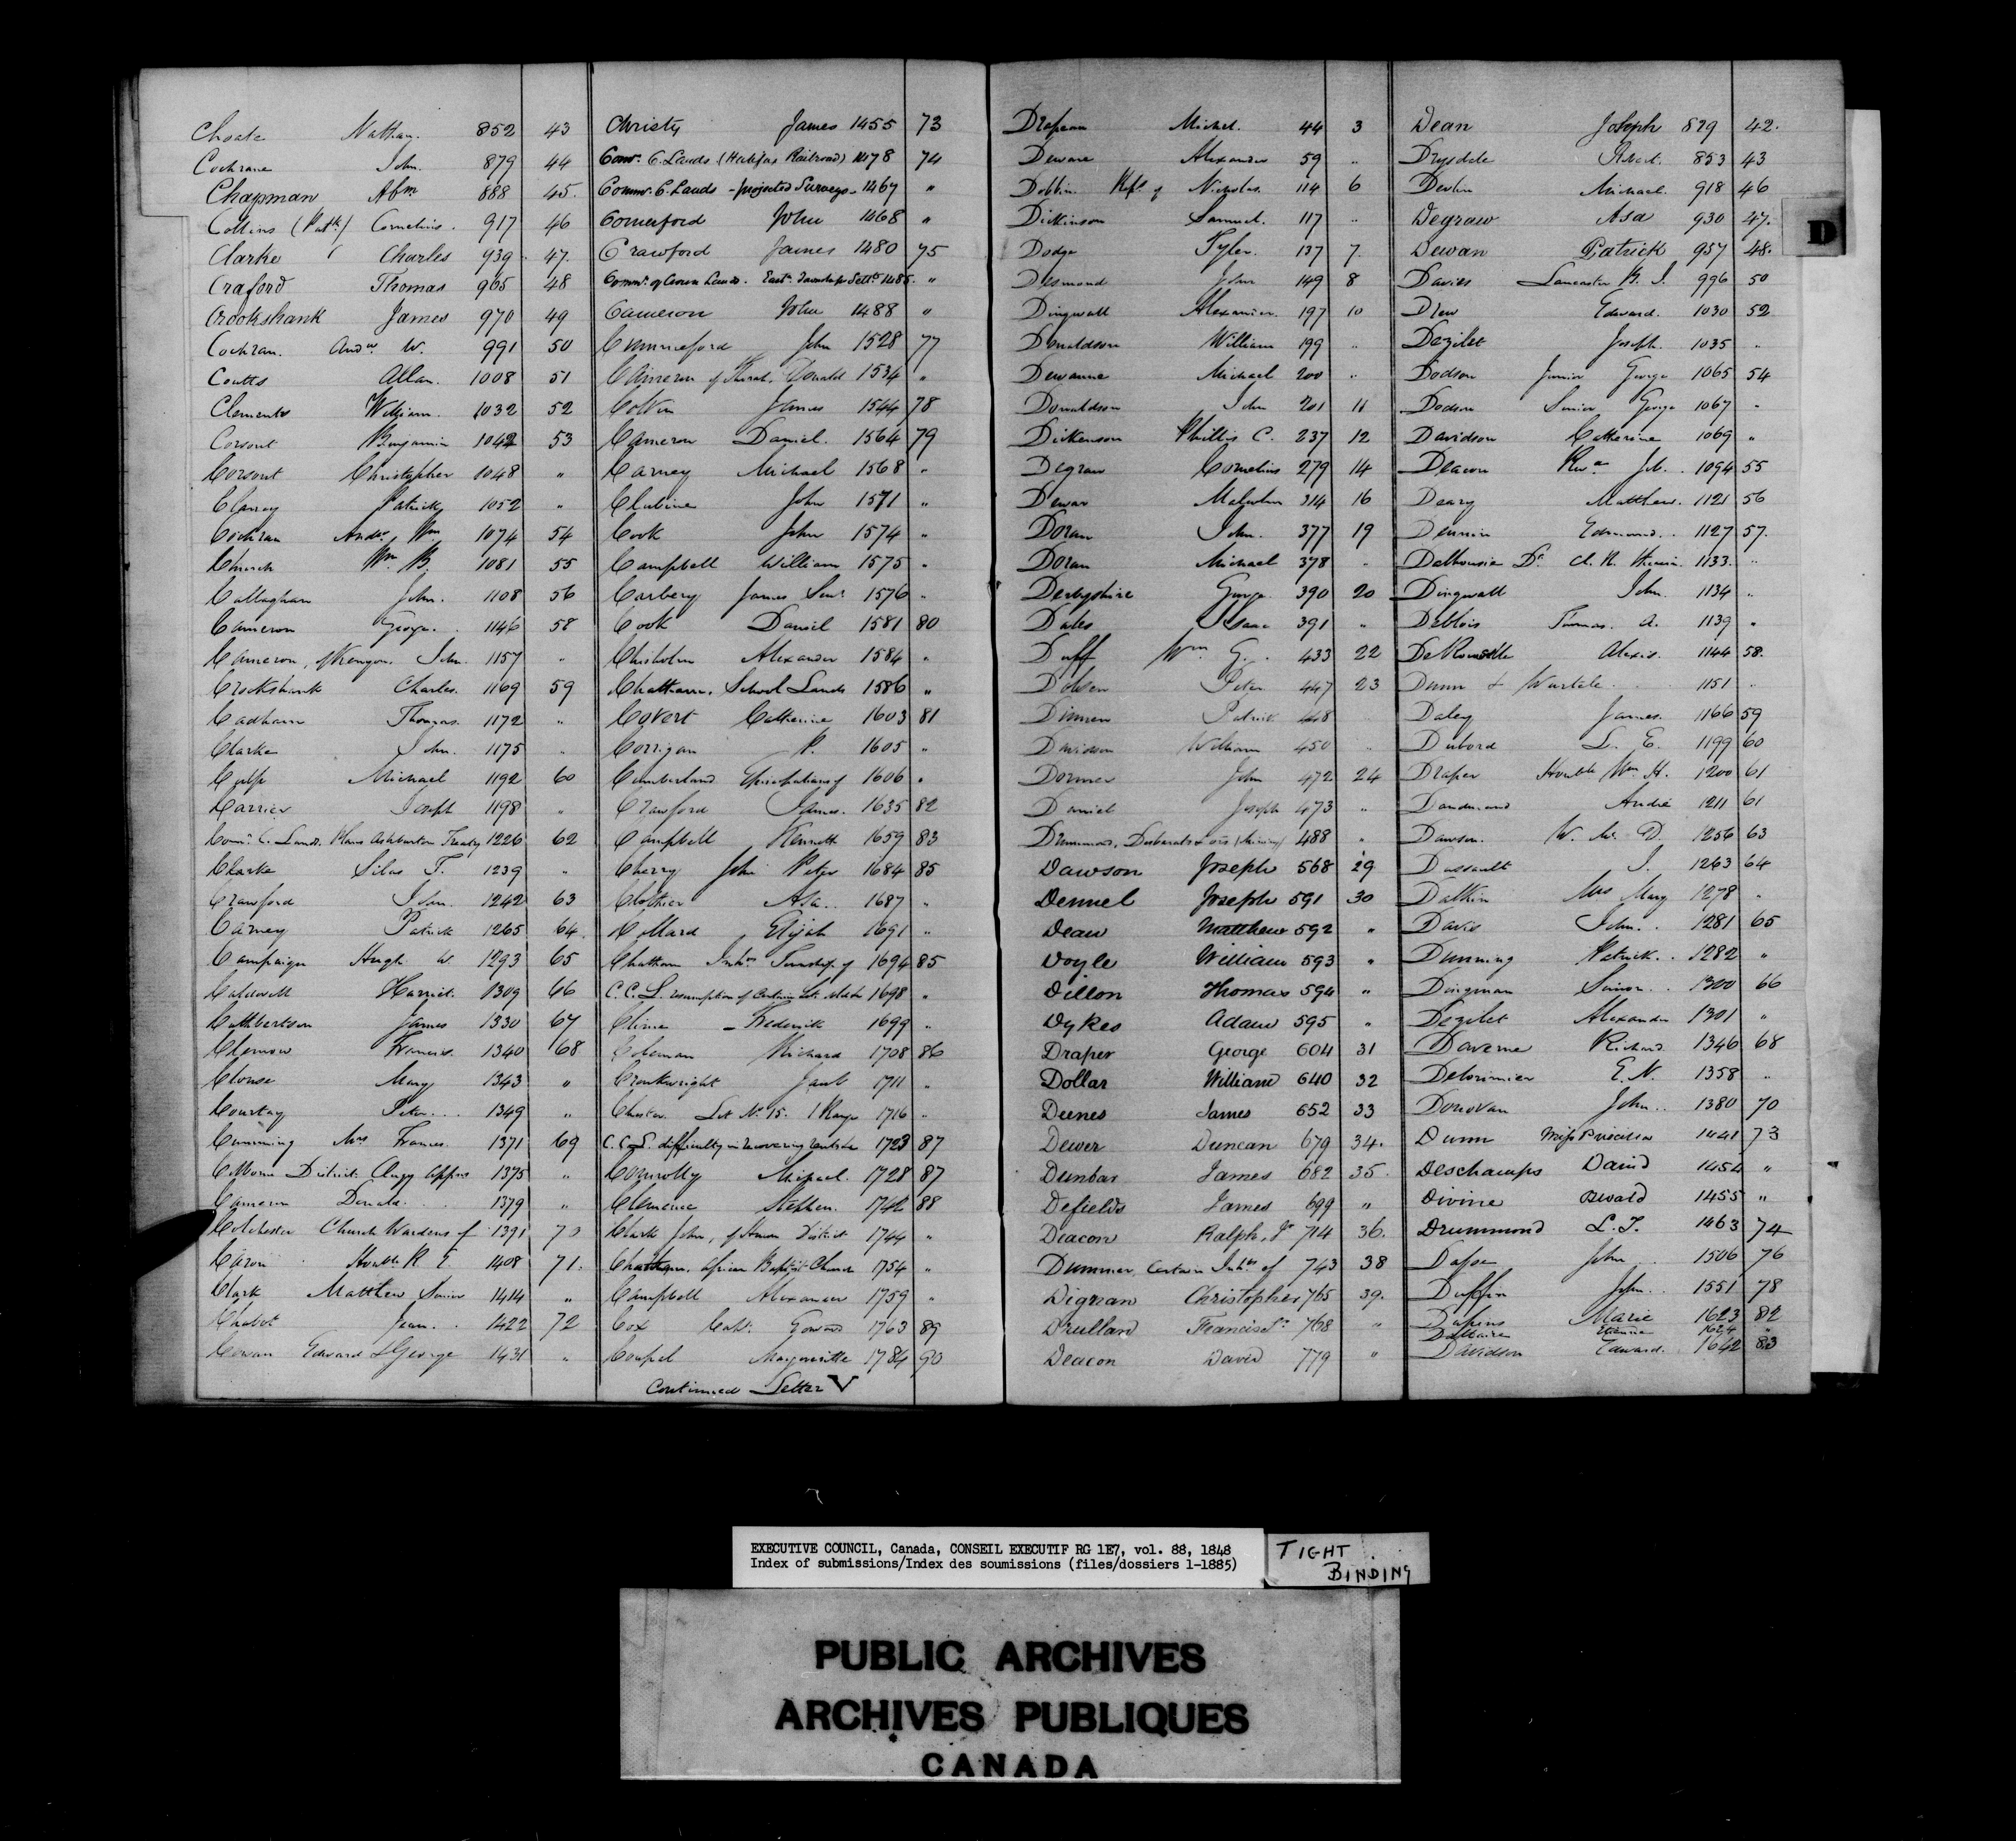 Choate Nathan. 852 43
Cochrane John. 879 44
Chapman Abm 888 45.
Collins (Patk) Cornelius. 917 46
Clarke Charles 939 47.
Craford Thomas 965 48
Crookshank James 970 49
Cochran. Andw. W. 991 50
Coutts Allan. 1008 51
Clements William. 1032 52
Corsout Benjamin 1042 53
Corsout Christopher 1048 "
Clancy Patrick 1052 "
Cochran Andw. Wm 1074 54
Church Wm. B. 1081 55
Callaghan John. 1108 56
Cameron George. 1146 58
Cameron, of Kenyon. John. 1157 "
Crookshank Charles. 1169 59
Cadham Thomas. 1172 "
Clarke John. 1175 "
Culp Michael 1192 60
Carrier Joseph 1198 "
Comr. C. Lands. Plans Ashburton Treaty 1226 62
Clarke Silas T. 1239 "
Crawford John. 1242 63
Carney Patrick 1265 64.
Campaign Hugh W. 1293 65
Caldwell Harriet. 1309 66
Cuthbertson James 1330 67
Clemow Francis. 1340 68
Clouse Mary 1343 "
Courtay Peter. 1349 "
Cumming Mrs Frances. 1371 69
Colborne District Clergy Appns 1375 "
Cameron Donald. 1379 "
Colchester Church Wardens of 1391 70
Caron Honble R. E. 1408 71.
Clark Matthew Senior 1414 "
Chabot Jean. 1422 72
Cowan Edward & George 1431 "
Christy James 1455 73
Comr. C. Lands (Halifax Railroad) 1478 74
Commr. C. Lands - projected Surveys - 1467 "
Comerford John 1468 "
Crawford James 1480 75
Commr. of Crown Lands. East. Townships Settt. 1485. "
Cameron John 1488 "
Cummerford John 1528 77
Cameron of Thorah, Donald 1534 "
Colvin James 1544 78
Cameron Daniel. 1564 79
Carney Michael 1568 "
Clubine John 1571 "
Cook John 1574 "
Campbell William 1575 "
Carbery James Senr 1576 "
Cook Daniel 1581 80
Chisholm Alexander 1584 "
Chatham. School Lands 1586 "
Covert Catherine 1603 81
Corrigan P. 1605 "
Cumberland Episcopalians of 1606 "
Crawford James. 1635 82
Campbell Kenneth 1659 83
Cherry John Peter 1684 85
Clothier Asa. 1687 "
Collard Elijah 1691 "
Chatham Inhts Township of 1694 85
C. C. L. resumption of Certain Lots 1698 "
Cline Frederick 1699 "
Coleman Richard 1708 86
Cronkwright Jacob 1711 "
Chester Lot No. 15. 1 Range 1716 "
C. C. L. difficulty in recovering 1723 87
Connolly Michael. 1728 87
Clemence Stephen. 1742 88
Clark John, of Huron District 1744 "
Chatham. African Baptist Church 1754 "
Campbell Alexander 1759 "
Cox Capt. Edward 1763 89
Coupal Marguerite 1784 90
Continued Letter V
Drapeau Michel. 44 3
Dewane Alexander 59 "
Dobbin Reps. of Nicholas. 114 6
Dickinson Samuel. 117 "
Dodge Tyler. 137 7.
Desmond John 149 8
Dingwall Alexander. 197 10
Donaldson William 199 "
Dewanne Michael 200 "
Donaldson John 201 11
Dickenson Phillis C. 237 12
Degraw Cornelius 279 14
Dewar Malcolm 314 16
Doran John. 377 19
Doran Michael 378 "
Derbyshire George. 390 20
Dales Isaac 391 "
Duff Wm G. 433 22
Dobson Peter. 447 23
Dinnen Patrick 448 "
Davidson William 450 "
Dormer John 472 24
Daniel Joseph 473 "
Drummond, Desbarats & ors (Mining) 488 "
Dawson Joseph 568 29
Dennel Joseph 591 30
Dean Matthew 592 "
Doyle William 593 "
Dillon Thomas 594 "
Dykes Adam 595 "
Draper George 604 31
Dollar William 640 32
Deenes James 652 33
Dewer Duncan 679 34.
Dunbar James 682 35.
Defields James 699 "
Deacon Ralph, Jr 714 36.
Dummer, Certain Inhts of 743 38
Dignan Christopher 765 39.
Drulland Francis Sr 768 "
Deacon David 779 "
D
Dean Joseph 829 42.
Drysdale Robert. 853 43
Devlin Michael. 918 46
Degraw Asa 930 47.
Dewan Patrick 957 48.
Davies Lancaster B. J. 996 50
Drew Edward. 1030 52
Dezilet Joseph. 1035 "
Dodson Junior George 1065 54
Dodson Senior George 1067 "
Davidson Catherine 1069 "
Deacon Revd. Job. 1094 55
Deary Matthew. 1121 56
Dennin Edmund. 1127 57.
Dalhousie Dt. 1133. "
Dingwall John. 1134 "
Deblois Thomas. A. 1139 "
DeRousselle Alexis. 1144 58.
Dunn & 1151 "
Daley James. 1166 59
Dubord L. E. 1199 60
Draper Honble Wm. H. 1200 61
Dandurand André 1211 61
Dawson. W. McD. 1256 63
Dussault J. 1263 64
Dalkin Mrs Mary 1278 "
Davis John. 1281 65
Dunning Patrick. 1282 "
Dingman Simon. 1300 66
Dezilet Alexander 1301 "
Daverne Richard. 1346 68
Delorimier E. N. 1358 "
Donovan John. 1380 70
Dunn Miss Priscilla 1441 73
Deschamps David 1454 "
Divine 1455 "
Drummond L. T. 1463 74
John 1506 76
Duffin John. 1551 78
Marie 1623 82
Dallaire Etienne 1624 "
Davidson Edward. 1642 83
EXECUTIVE COUNCIL, Canada, CONSEIL EXECUTIF RG 1E7, vol. 88, 1848
Index of submissions/Index des soumissions (files/dossiers 1-1885)
TIGHT
BINDING
PUBLIC ARCHIVES
ARCHIVES PUBLIQUES
CANADA